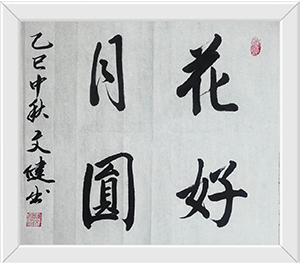 花好
月圓
乙巳中秋文健书